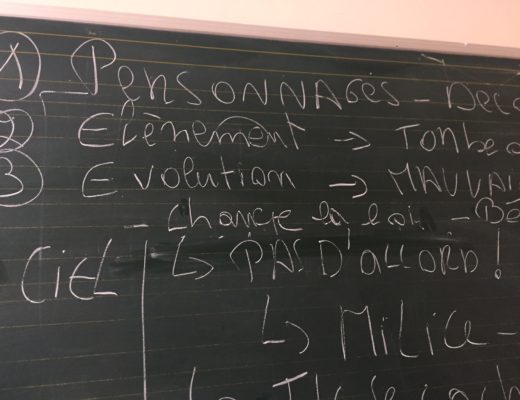 1 Personnages - Deco
2 Elènement → Tonbea
3 Evolution → MAUVAI
- change la loi - Bé
CIEL ↳ PAS D'accord !
↳ Milice -